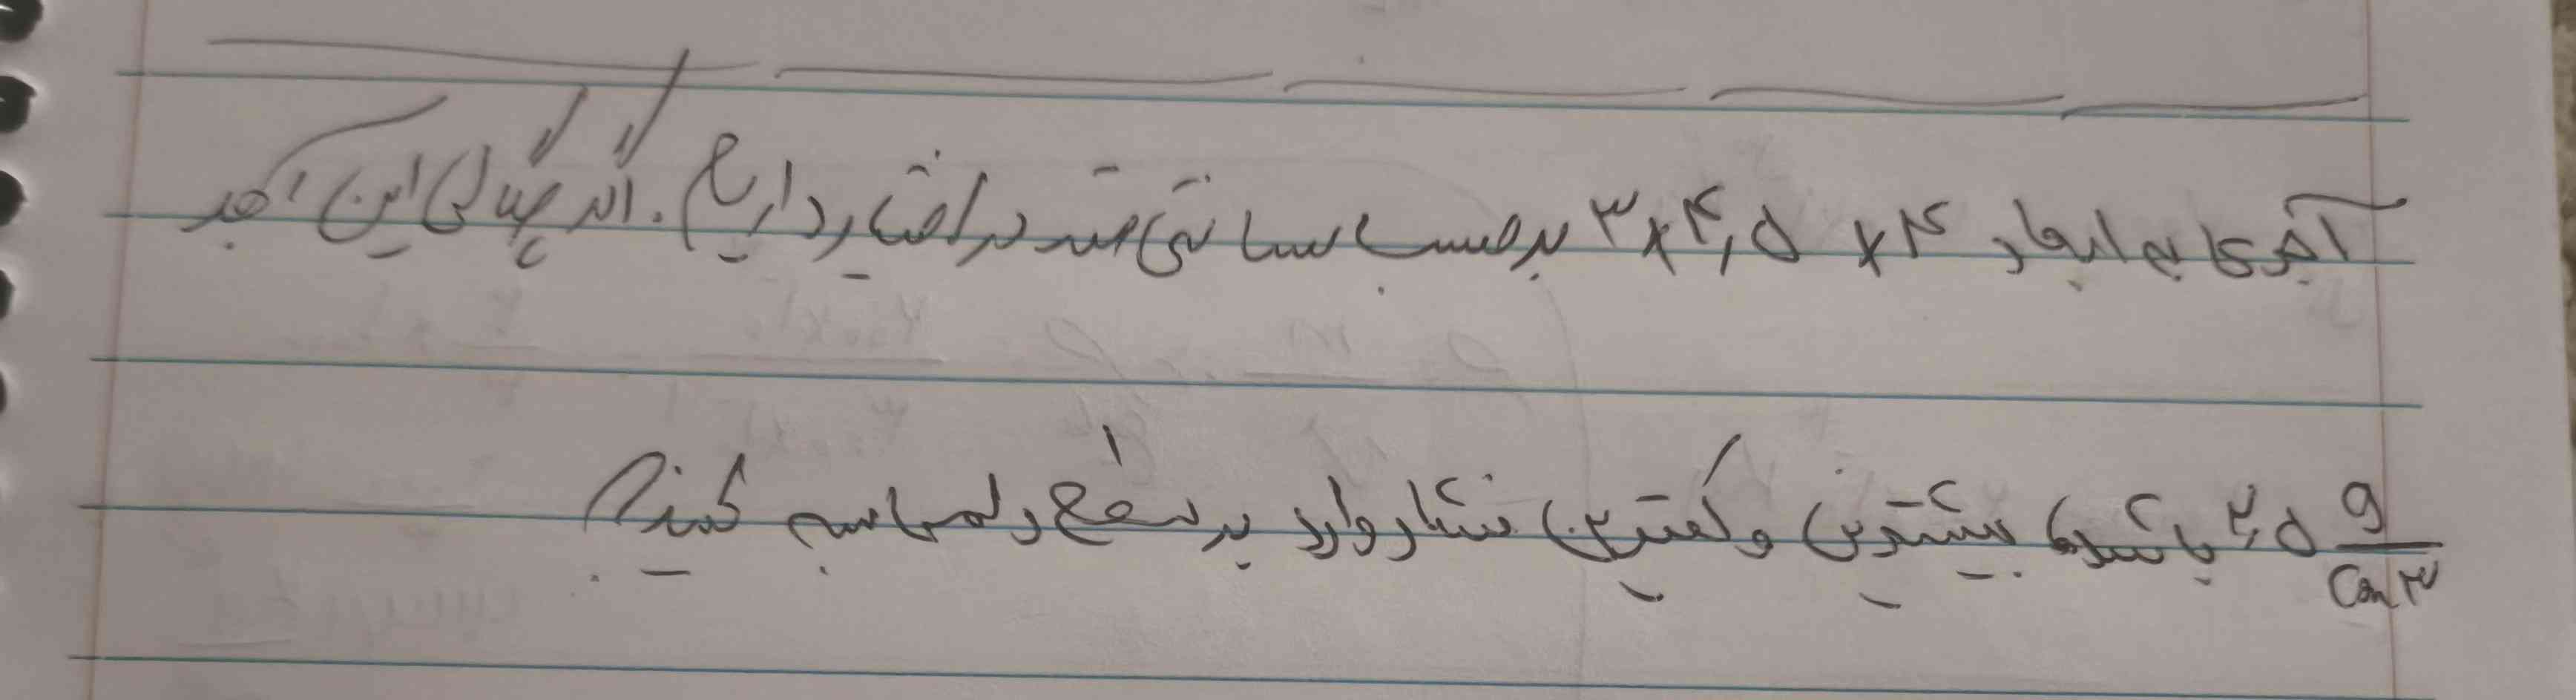 آجری به ابعاد ۴ × ۴,۵ × ۳ برحسب سانتی متر در اختیار داریم. اگر چگالی این آجر
۲,۵ g/cm۳ باشد، بیشترین و کمترین فشار وارد بر سطح را محاسبه کنید؟